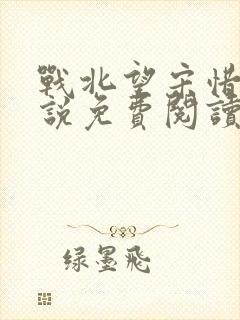 戰北望宋惜
說免費閱讀
绿墨飛